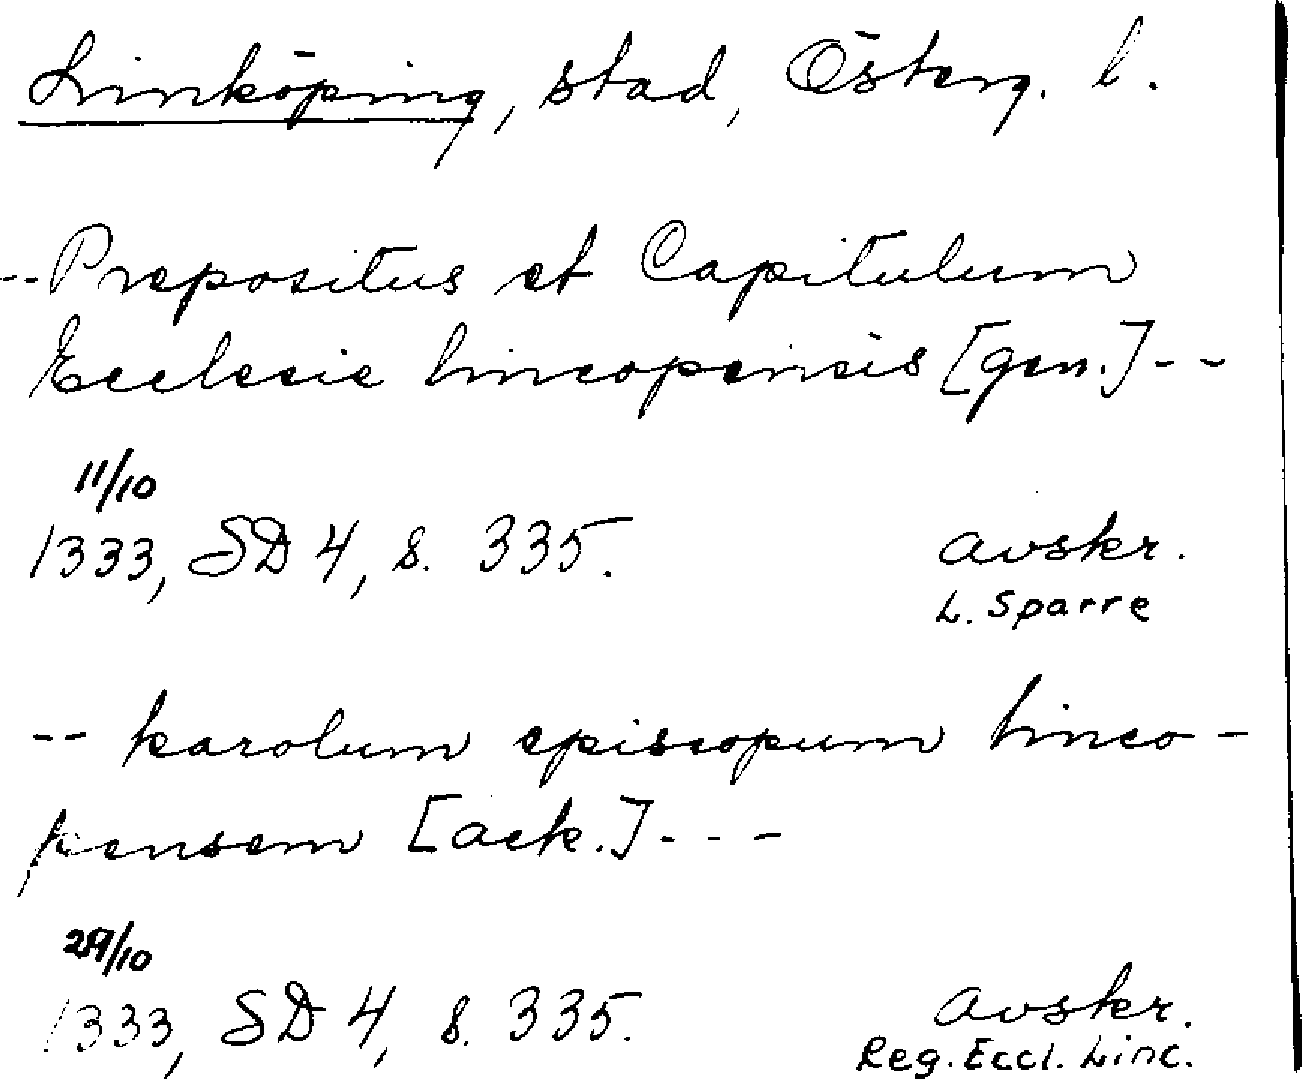 Linköping, stad, Österg. l.
-- Prepositus et Capitulum
Ecclesie lincopensis [gen.] - -
11/10
1333, SD 4, s. 335. avskr.
L. Sparre
-- karolum episcopum linco-
pensem [ack.] - - -
29/10
1333, SD 4, s. 335. avskr.
Reg. Eccl. Linc.